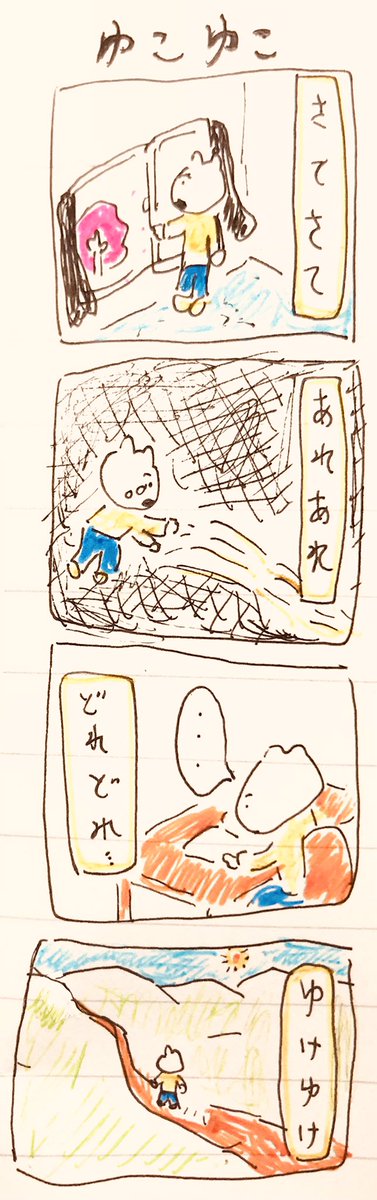 ゆこゆこ
さてさて
あれあれ
・・・
どれどれ…
ゆけゆけ